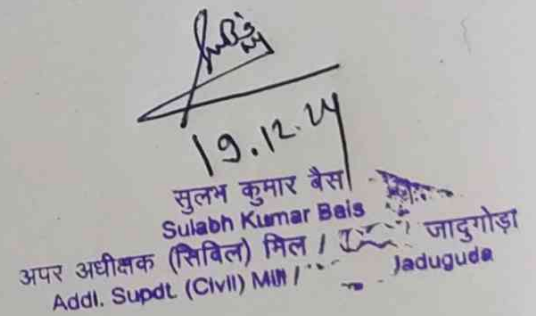 19.12.24
सुलभ कुमार बैस
Sulabh Kumar Bais
अपर अधीक्षक (सिविल) मिल / जादुगोड़ा
Addl. Supdt. (Civil) Mill / Jaduguda